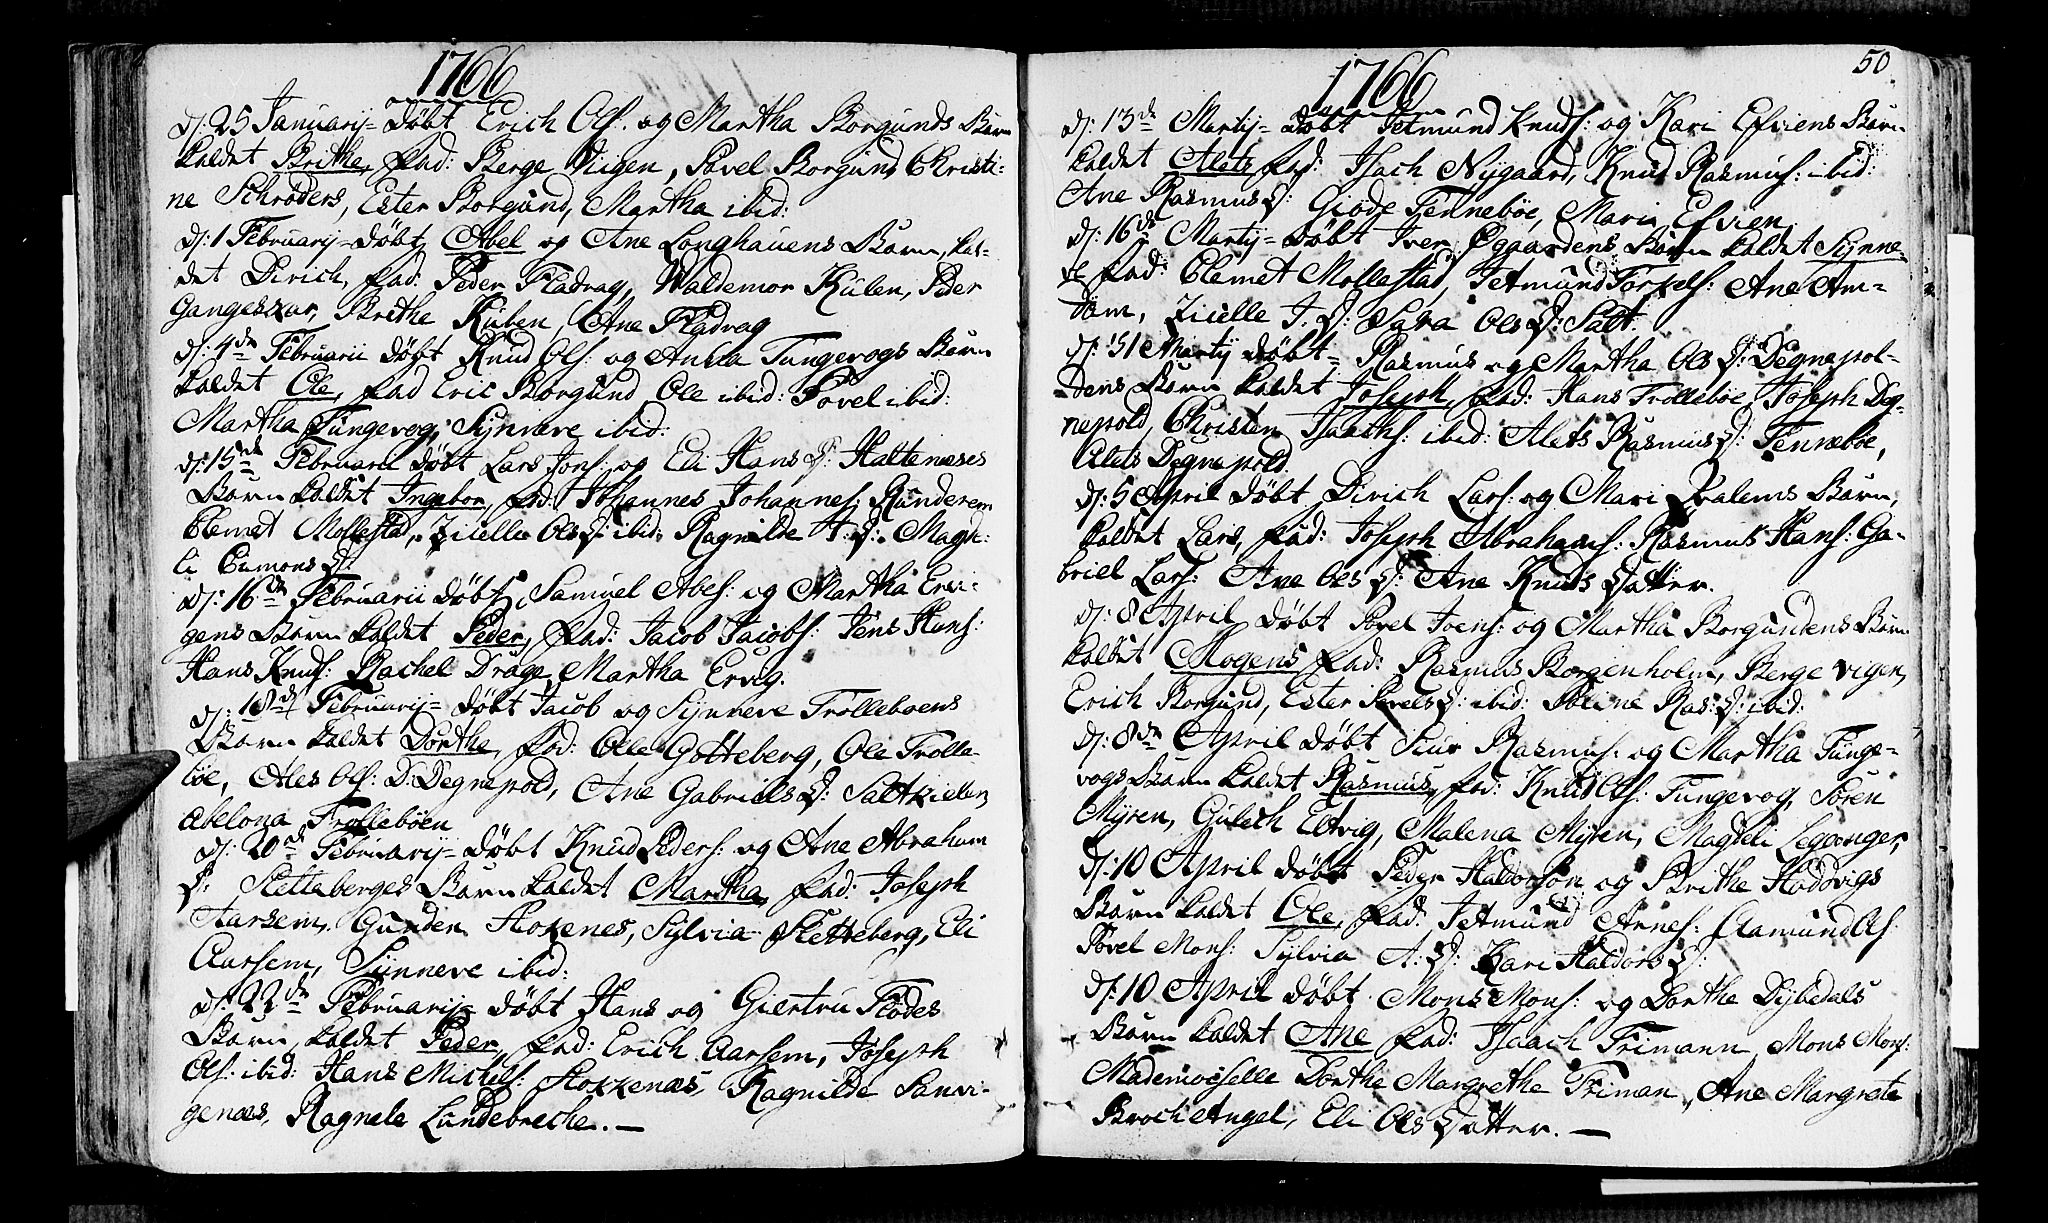 1766
d: 25 Januarij = Døbt Erich Ols: og Martha Borgunds Barn
kaldet Brithe, fad: Berge Viigen, Povel Borgund Christi-
ne Schrøders, Ester Borgund, Martha ibid:
d: 1 Februarij = døbt Abel og Ane Longhauens Barn, kal-
det Dirich, fad: Peder Fladvag, Waldemor Kulen, Peder
Gangeskar, Brithe Kuben, Ane Fladvag
d: 4de Februarii døbt Knud Ols: og Anna Tungevogs Barn
kaldet Ole, fad Eric Borgund Ole ibid: Povel ibid:
Martha Tungevog, Synneve ibid:
d: 15de Februarii døbt Lars Jons: og Eli Hans D: Hatlenæses
Barn kaldet Ingebor, fad: Johannes Johannes: Runderem
Clemet Mollestad, Zicelle Ols D: ibid: Ragnilde D: Magde-
li Simons D:
d: 16de Februarii døbt Samuel Abels: og Martha Ervi-
gens Barn kaldet Peder, fad: Jacob Jacobs: Jens Hans:
Hans Knuds: Rachel Drage, Martha Ervig.
d: 18de Februarij = døbt Jacob og Synneve Trolleboens
Barn kaldet Dorthe, fad: Ole Gotteberg, Ole Trolle-
bøe, Ales Ols: D: Degnepold, Ane Gabriels D: Saltkiellen
Abelona Trollebøen
d: 20de Februarij = døbt Knud Peders: og Ane Abraham
D: Slettebergs Barn kaldet Martha, fad: Joseph
Aarsem, Gunder Stokenes, Sylvia Sletteberg, Eli
Aarsem, Synneve ibid:
d: 22de Februarij = døbt Hans og Giertru Flødes
Barn, kaldet Peder, fad: Erich Aarsem, Joseph
Ols: ibid: Hans Michels: Stokkenæs, Ragnilde Sanvi-
genæs, Ragnele Lundebreche. —
50
1766
d: 13de Martij = døbt Jetmund Knuds: og Kari Efviens Barn
kaldet Alets, fad: Isach Nygaard, Knud Rasmus: ibid:
Ane Rasmus D: Giøde Tennebøe, Mari Efvien
d: 16de Martij = døbt Iver Øgaardens Barn kaldet Synne-
ve fad: Clemet Mollestad, Jetmund Torkels: Ane Am-
dam, Zicelle J: D: Sara Ols D: Salt.
d: 31 Martij døbt = Rasmus og Martha Ols D: Degnepol-
dens Barn kaldet Joseph, fad: Hans Trollebøe, Joseph Deg-
nepold, Christen Isachs: ibid: Alets Rasmus D: Tennebøe,
Alets Degnepold.
d: 5 April døbt Dirich Lars: og Mari Kalems Barn,
kaldet Lars, fad: Joseph Abrahams: Rasmus Hans: Ga-
briel Lars: Ane Ols D: Ane Knuds Datter.
d: 8 April døbt Povel Ivers: og Martha Borgundens Barn
kaldet Mogens fad: Rasmus Borgenholm, Berge Vigen,
Erich Borgund, Ester Povels D: ibid: Oline Ras: D: ibid:
d: 8de April døbt Siur Rasmus: og Martha Tunge-
vogs Barn kaldet Rasmus, fad: Knud Ols: Tungevog, Søren
Myren, Gulech Eltvig, Malena Myren, Magdeli Legvonger,
d: 10 April døbt Peder Haldorsøn og Brithe Hadvigs
Barn kaldet Ole, fad: Jetmund Arnes: Aamund Ols:
Povel Mons: Sylvia A: D: Kari Haldors D:
d: 10 April døbt Mons Mons: og Dorthe Dybedals
Barn kaldet Ane fad: Isaach Frimann, Mons Mons:
Mademoiselle Dorthe Margrethe Friman, Ane Margrete
Broch Angel, Eli Ols Datter. —